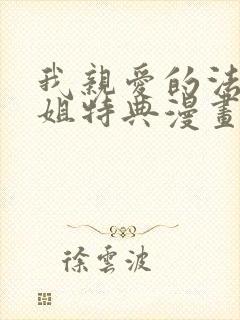 我親愛的法
姐特典漫畫
徐雲波